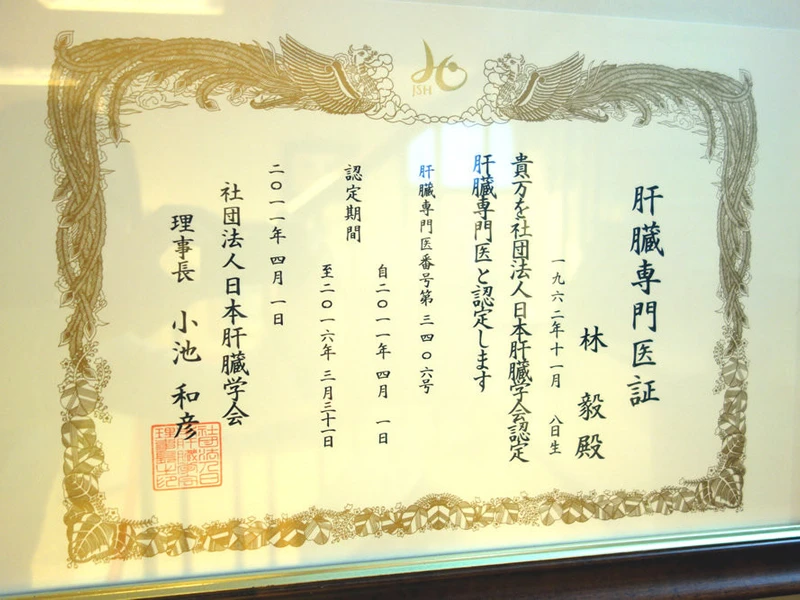 JSH
肝臓専門医証
林 毅 殿
一九六二年十一月 八日生
貴方を社団法人日本肝臓学会認定
肝臓専門医と認定します
肝臓専門医番号第 三四〇六号
認定期間
自二〇一一年 四月 一日
至二〇一六年 三月三十一日
二〇一一年 四月 一日
社団法人日本肝臓学会
理事長 小池 和彦